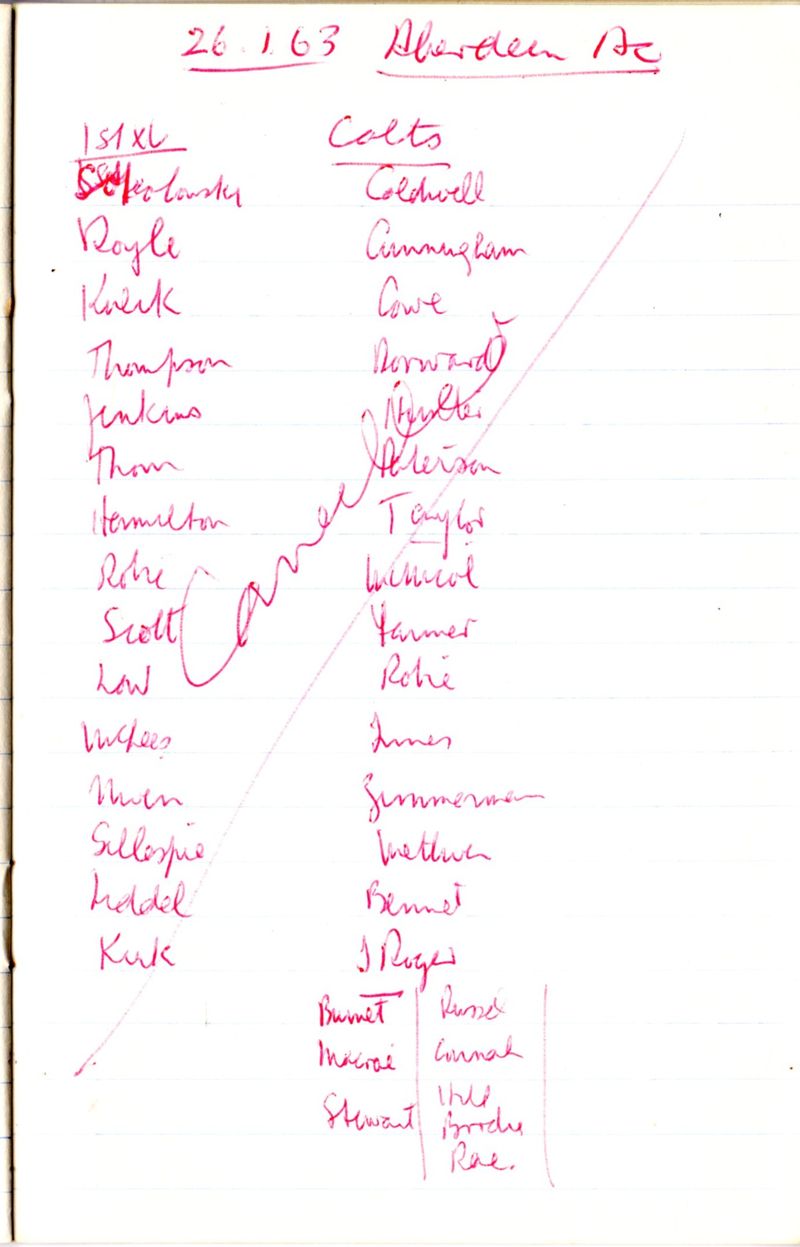 26.1.63 Aberdeen Ac
1st XV Colts
Coldwell
Royle Cunningham
Cowe
Thompson Dorward
Jenkins Hunter
Thom Paterson
Hamilton Taylor
Robie McNicol
Scott Farmer
Low Robie
McLees Innes
Niven Zimmerman
Gillespie Methven
Liddel Bennet
Kirk J Roger
Cancelled
Burnet Russel
Macrae Connah
Stewart Hild
Brodie
Rae.